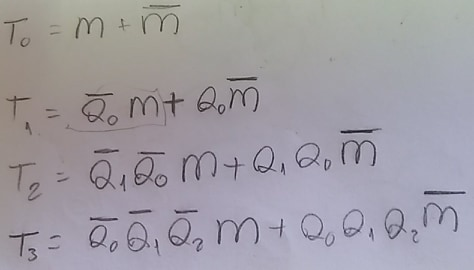 T₀ = m + m̅
T₁ = Q̅₀ m + Q₀ m̅
T₂ = Q̅₁ Q̅₀ m + Q₁ Q₀ m̅
T₃ = Q̅₀ Q̅₁ Q̅₂ m + Q₀ Q₁ Q₂ m̅